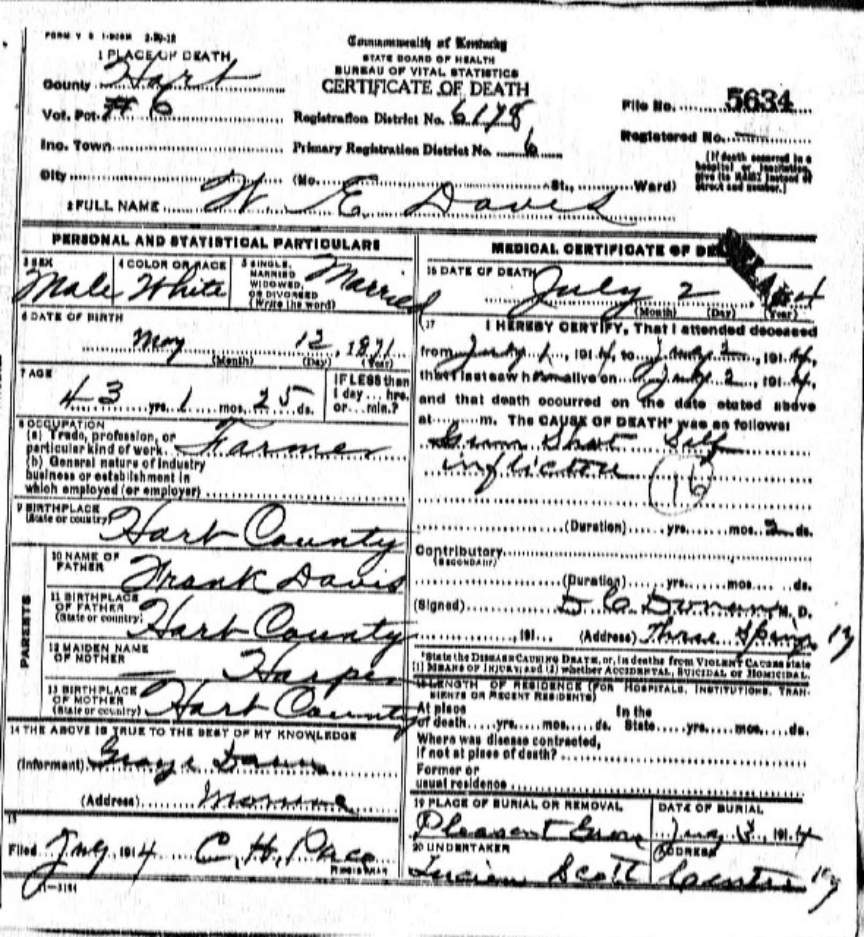 Commonwealth of Kentucky
STATE BOARD OF HEALTH
BUREAU OF VITAL STATISTICS
CERTIFICATE OF DEATH
1 PLACE OF DEATH
County Hart
Vot. Pct. # 6
Inc. Town
City (No. St., Ward)
Registration District No. 6178
Primary Registration District No. 6
File No. 5634
Registered No.
(If death occurred in a
hospital or institution,
give its NAME instead of
street and number.)
2 FULL NAME W E Davis
PERSONAL AND STATISTICAL PARTICULARS
3 SEX Male
4 COLOR OR RACE White
5 SINGLE,
MARRIED
WIDOWED,
OR DIVORCED
(Write the word) Married
6 DATE OF BIRTH
May 12, 1871
(Month) (Day) (Year)
7 AGE
43 yrs. 1 mos. 25 ds.
IF LESS than
1 day... hrs.
or... min.?
8 OCCUPATION
(a) Trade, profession, or
particular kind of work Farmer
(b) General nature of industry
business or establishment in
which employed (or employer)
9 BIRTHPLACE
(State or country) Hart County
PARENTS
10 NAME OF
FATHER Frank Davis
11 BIRTHPLACE
OF FATHER
(State or country) Hart County
12 MAIDEN NAME
OF MOTHER Harper
13 BIRTHPLACE
OF MOTHER
(State or country) Hart County
14 THE ABOVE IS TRUE TO THE BEST OF MY KNOWLEDGE
(Informant)
(Address)
15
Filed July 1914 C. H. Pace
REGISTRAR
MEDICAL CERTIFICATE OF
16 DATE OF DEATH
July 2
(Month) (Day) (Year)
17 I HEREBY CERTIFY, That I attended deceased
from July 1, 1914, to July 2, 1914,
that I last saw him alive on July 2, 1914,
and that death occurred on the date stated above
at m. The CAUSE OF DEATH* was as follows:
Gunn Shot Self
inflicted
(Duration) yrs. mos. 2 ds.
Contributory
(SECONDARY)
(Duration) yrs. mos. ds.
(Signed) M. D.
, 191 (Address) Three Springs Ky
*State the DISEASE CAUSING DEATH, or, in deaths from VIOLENT CAUSES state
(1) MEANS OF INJURY; and (2) whether ACCIDENTAL, SUICIDAL or HOMICIDAL.
18 LENGTH OF RESIDENCE (FOR HOSPITALS, INSTITUTIONS, TRAN-
SIENTS OR RECENT RESIDENTS)
At place In the
of death yrs. mos. ds. State yrs. mos. ds.
Where was disease contracted,
if not at place of death?
Former or
usual residence
19 PLACE OF BURIAL OR REMOVAL
Pleasant Grove
DATE OF BURIAL
July 3, 1914
20 UNDERTAKER
Lucien Scott
ADDRESS
Center Ky